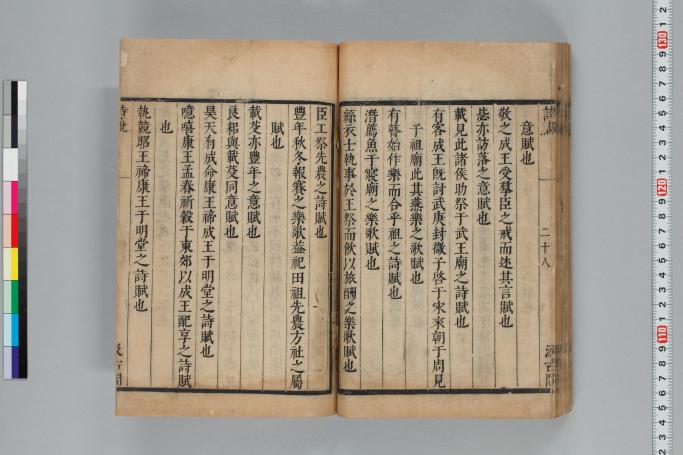 意賦也
敬之成王受羣臣之戒而述其言賦也
毖亦訪落之意賦也
載見此諸侯助祭于武王廟之詩賦也
有客成王旣討武庚封微子啓于宋來朝于周見
于祖廟此其燕樂之歌賦也
有瞽始作樂而合乎祖之詩賦也
潛薦魚于寢廟之樂歌賦也
絲衣士執事於王祭而飲以旅酬之樂歌賦也
二十八
汲古閣
臣工祭先農之詩賦也
豐年秋冬報賽之樂歌葢祀田祖先農方社之屬
賦也
載芟亦豐年之意賦也
良耜與載芟同意賦也
昊天有成命康王禘成王于明堂之詩賦也
噫嘻康王孟春祈穀于東郊以成王配享之詩賦
也
執競昭王禘康王于明堂之詩賦也
詩說
汲古閣